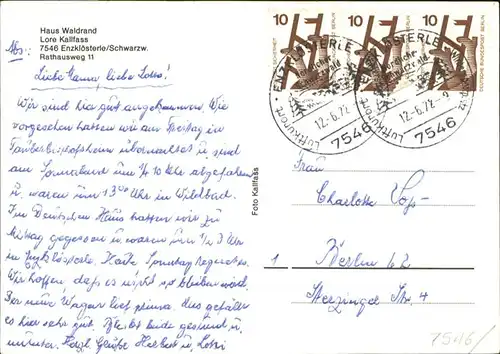 Haus Waldrand
Lore Kallfass
7546 Enzklösterle/Schwarzw.
Rathausweg 11
Abs:
Liebe Hanna, liebe Lotte!
Wir sind hier gut angekommen. Wie
vorgesehen hatten wir am Freitag in
Tauberbischofsheim übernachtet u. sind
am Sonnabend um 1/4 10 Uhr abgefahren
u. waren um 13 00 Uhr in Wildbad.
Im Deutschen Haus hatten wir zu
Mittag gegessen u. waren um 1/2 3 Uhr
in Enzklösterle. Heute Sonntag Regenwetter.
Wir hoffen, daß es nicht so bleiben wird.
Der neue Wagen lief prima. Uns gefällt
es hier sehr gut. Bleibt beide gesund u.
munter. Herzl. Grüße Herbert u. Lotti
Foto Kallfass
10 10 10
UNFALLSICHERHEIT
DEUTSCHE BUNDESPOST BERLIN
ENZKLÖSTERLE
LUFTKURORT
12.-6.72.-9
7546
ENZKLÖSTERLE
LUFTKURORT
12.-6.72.-9
7546
Frau
Charlotte
1 Berlin 62
Str. 4
7546/